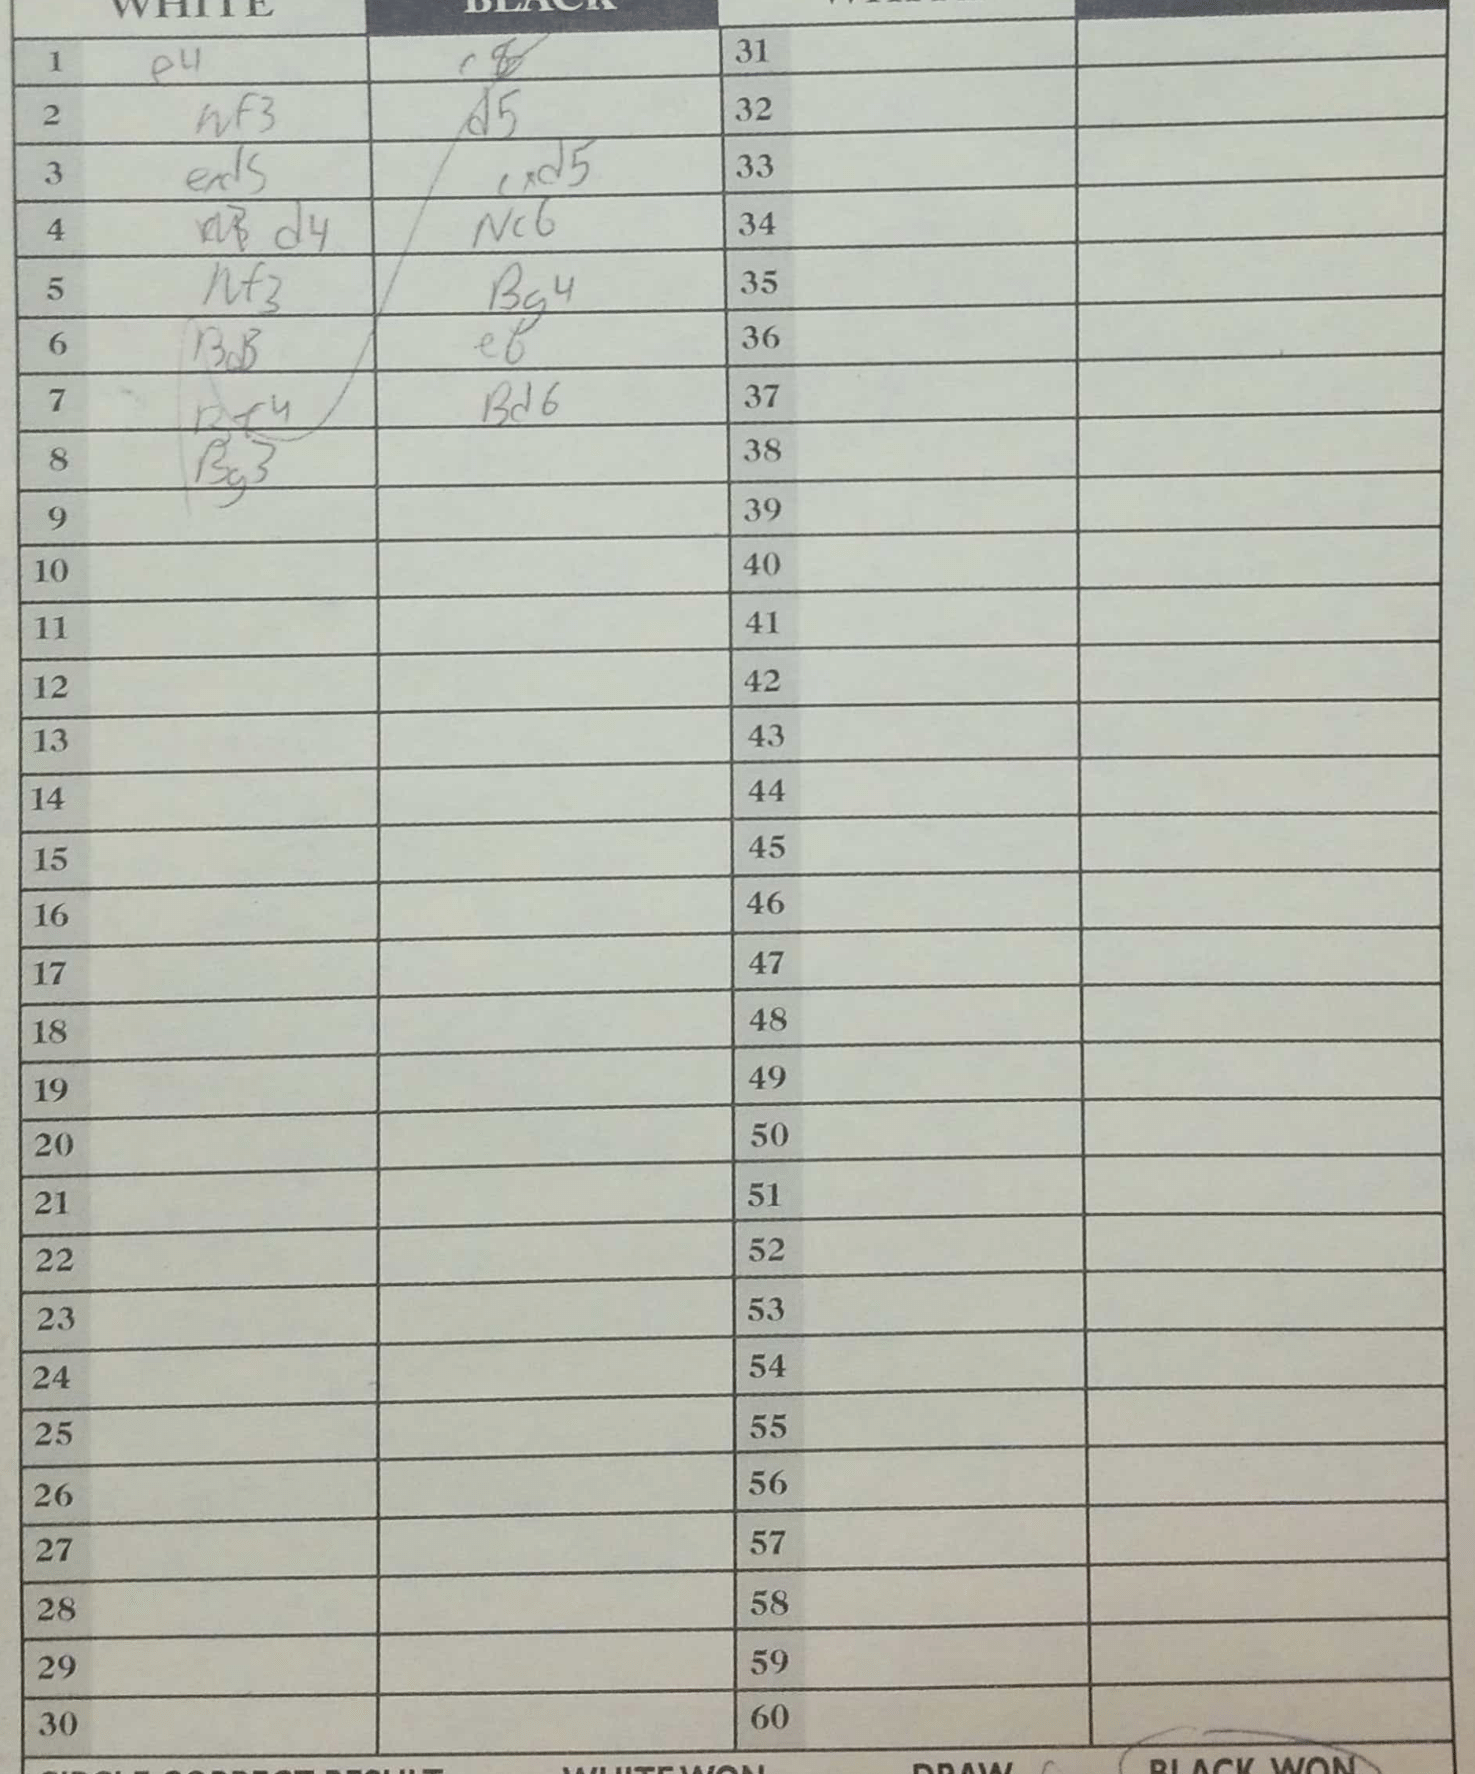 WHITE BLACK
1 e4 31
2 Nf3 d5 32
3 exd5 cxd5 33
4 d4 Nc6 34
5 Nf3 Bg4 35
6 e6 36
7 Bf4 Bd6 37
8 Bg3 38
9 39
10 40
11 41
12 42
13 43
14 44
15 45
16 46
17 47
18 48
19 49
20 50
21 51
22 52
23 53
24 54
25 55
26 56
27 57
28 58
29 59
30 60
CIRCLE CORRECT RESULT WHITE WON DRAW BLACK WON